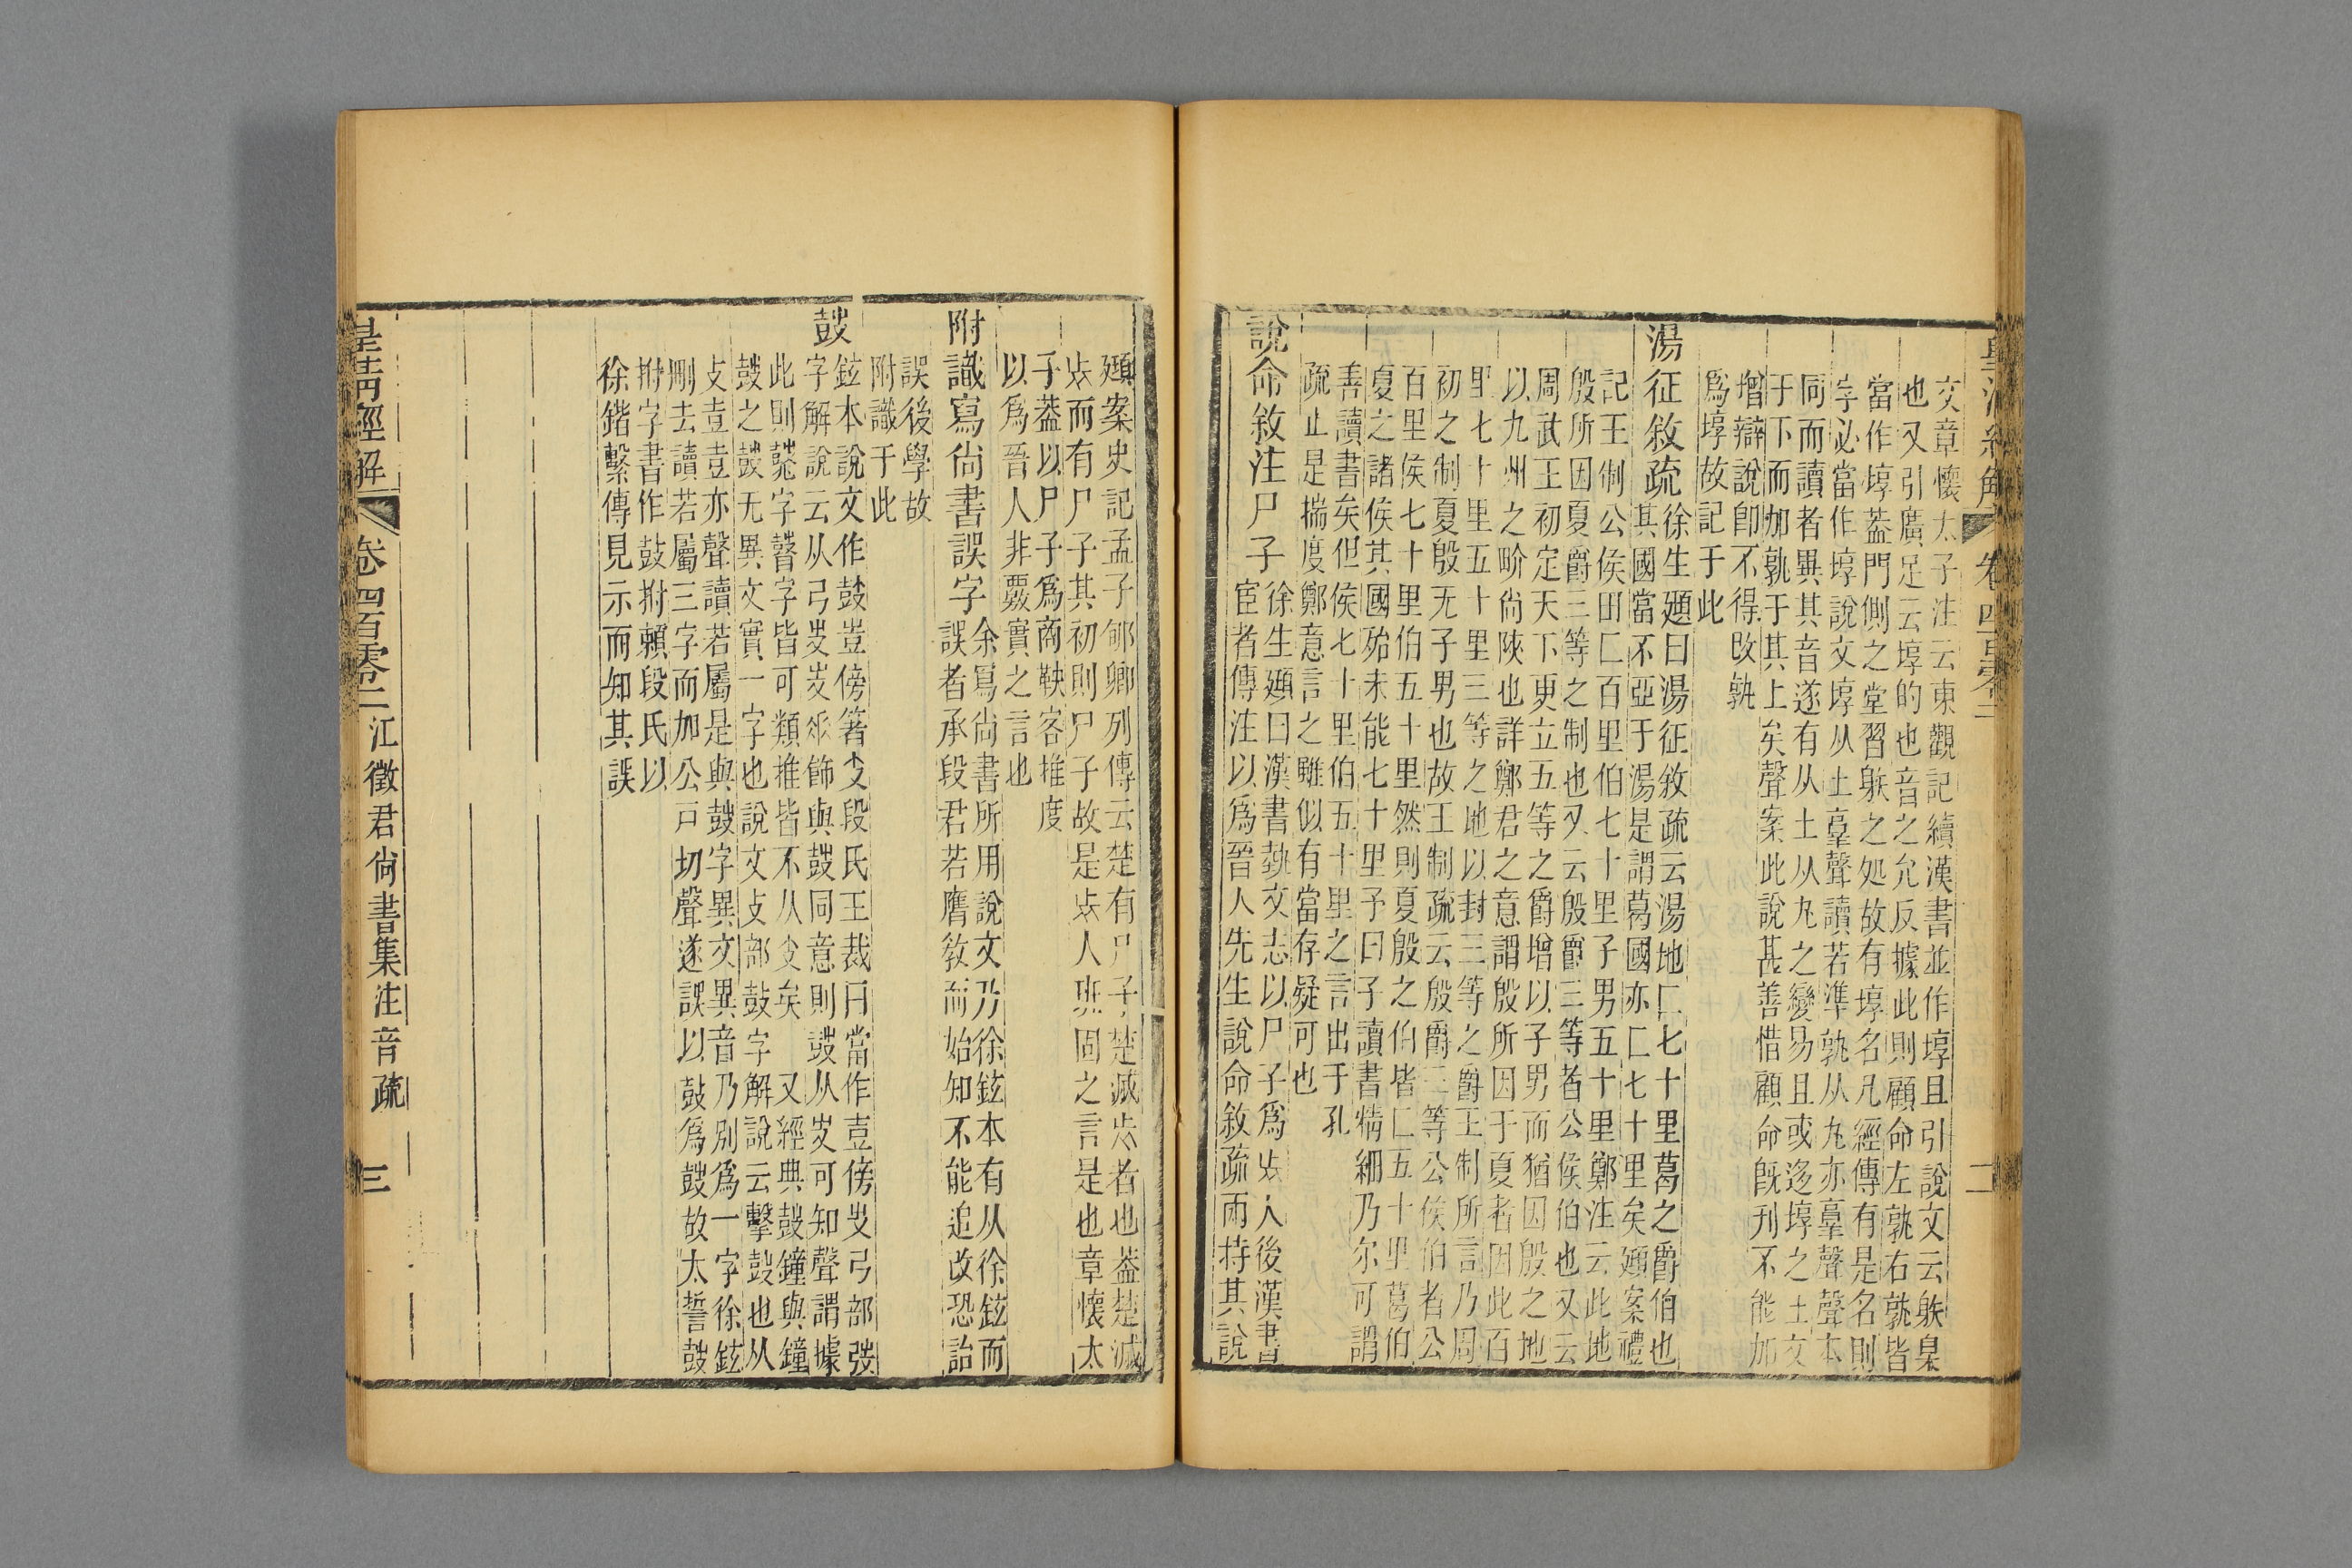 皇清經解
卷四百零二
二
文章懷太子注云東觀記續漢書並作埻且引說文云躲臬
也又引廣足云埻的也音之允反據此則顧命左孰右孰皆
當作埻葢門側之堂習躲之処故有埻名凡經傳有是名則
字必當作埻說文埻从土𦎫聲讀若準孰从丮亦𦎫聲聲本
同而讀者異其音遂有从土从丮之變易且或迻埻之土文
于下而加孰于其上矣聲案此說甚善惜顧命旣刊不能加
增辯說卽不得改孰
爲埻故記于此
湯征敘疏
徐生頲曰湯征敘疏云湯地匚七十里葛之爵伯也
其國當不亞于湯是謂葛國亦匚七十里矣頲案禮
記王制公侯田匚百里伯七十里子男五十里鄭注云此地
殷所因夏爵三等之制也又云殷爵三等者公侯伯也又云
周武王初定天下更立五等之爵增以子男而猶因殷之地
以九州之畍尙陜也詳鄭君之意謂殷所因于夏者因此百
里七十里五十里三等之地以封三等之爵王制所言乃周
初之制夏殷无子男也故王制疏云殷爵三等公侯伯者公
百里侯七十里伯五十里然則夏殷之伯皆匚五十里葛伯
夏之諸侯其國殆未能七十里予曰子讀書精細乃尔可謂
善讀書矣但侯七十里伯五十里之言出于孔
疏止是揣度鄭意言之雖似有當存疑可也
說命敘注尸子
徐生頲曰漢書埶文志以尸子爲𡗜人後漢書
宦者傳注以爲晉人先生說命敘疏兩持其說
頲案史記孟子郇卿列傳云楚有尸子楚滅𡗜者也葢楚滅
𡗜而有尸子其初則尸子故是𡗜人班固之言是也章懷太
子葢以尸子爲商鞅客推度
以爲晉人非覈實之言也
附識寫尙書誤字
余寫尙書所用說文乃徐鉉本有从徐鉉而
誤者承段君若膺敎而始知不能追改恐詒
誤後學故
附識于此
鼓
鉉本說文作鼓豈傍箸攴段氏王裁曰當作壴傍𡳾弓部弢
字解說云从弓𡳾𡳾𠂹飾與鼓同意則鼓从𡳾可知聲謂據
此則鼗字鼛字皆可類推皆不从攴矣 又經典鼓鐘與鐘
鼓之鼓无異文實一字也說文攴部鼓字解說云擊鼓也从
攴壴壴亦聲讀若屬是與鼓字異文異音乃別爲一字徐鉉
刪去讀若屬三字而加公戸切聲遂誤以鼓爲鼓故太誓鼓
拊字書作鼓拊賴段氏以
徐鍇繫傳見示而知其誤
皇清經解
卷四百零二
江徵君尙書集注音疏
三